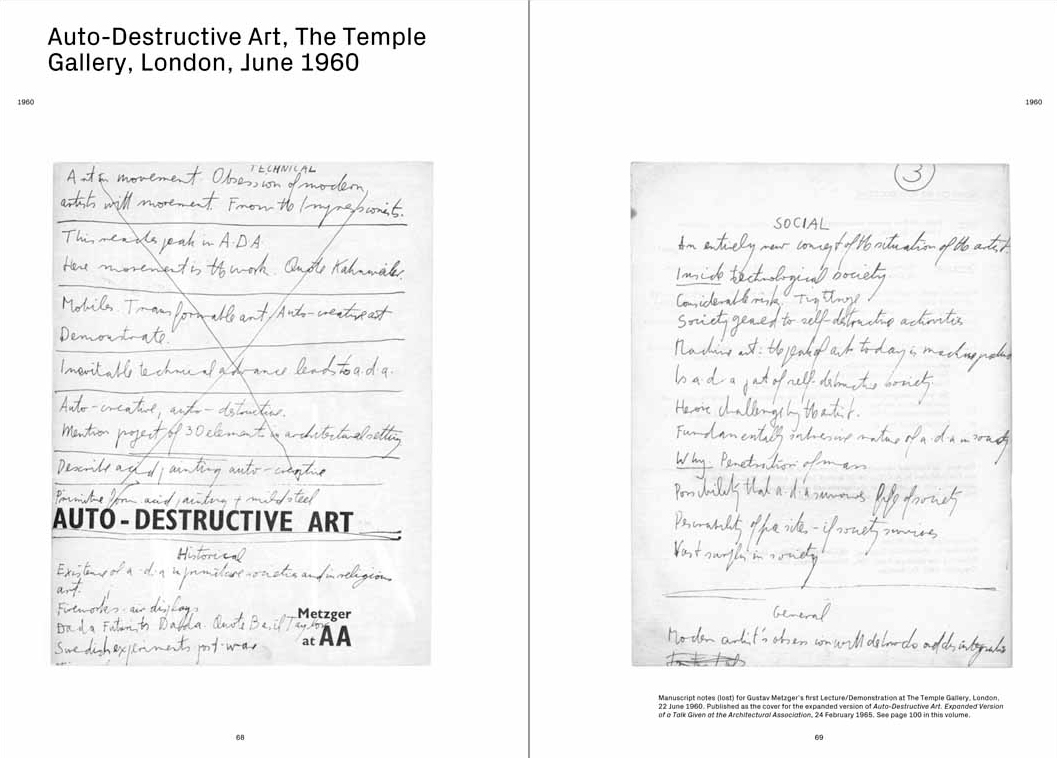 Auto-Destructive Art, The Temple
Gallery, London, June 1960
1960
TECHNICAL
Art in movement. Obsession of modern
artists with movement. From the Impressionists.
This reaches peak in A.D.A
Here movement is the work. Quote Kahnweiler.
Mobiles. Transformable art, Auto-creative art
Demonstrate.
Inevitable technical advance leads to a.d.a.
Auto-creative, auto-destructive.
Mention project of 3D element in architectural setting
Describe acid painting auto-creative
Primitive form acid painting + mild steel
AUTO-DESTRUCTIVE ART
Historical
Existence of a-d-a in primitive societies and in religious
art.
Fireworks - air displays
Dada Futurists Dada. Quote Basil Taylor
Swedish experiments post-war
Metzger
at AA
68
1960
3
SOCIAL
An entirely new concept of the situation of the artist.
Inside technological society
Considerable risk.
Society geared to self-destructive activities
Machine art: the peak of art today is machine
Is a-d-a part of self-destructive society.
Heroic challenge by the artist.
Fundamentally subversive nature of a-d-a in society
Why. Penetration of mass
Possibility that a-d-a survives life of society
Desirability of - if society survives
Vast in society
General
Modern artist's obsession with and disintegration
Manuscript notes (lost) for Gustav Metzger's first Lecture/Demonstration at The Temple Gallery, London,
22 June 1960. Published as the cover for the expanded version of Auto-Destructive Art. Expanded Version
of a Talk Given at the Architectural Association, 24 February 1965. See page 100 in this volume.
69